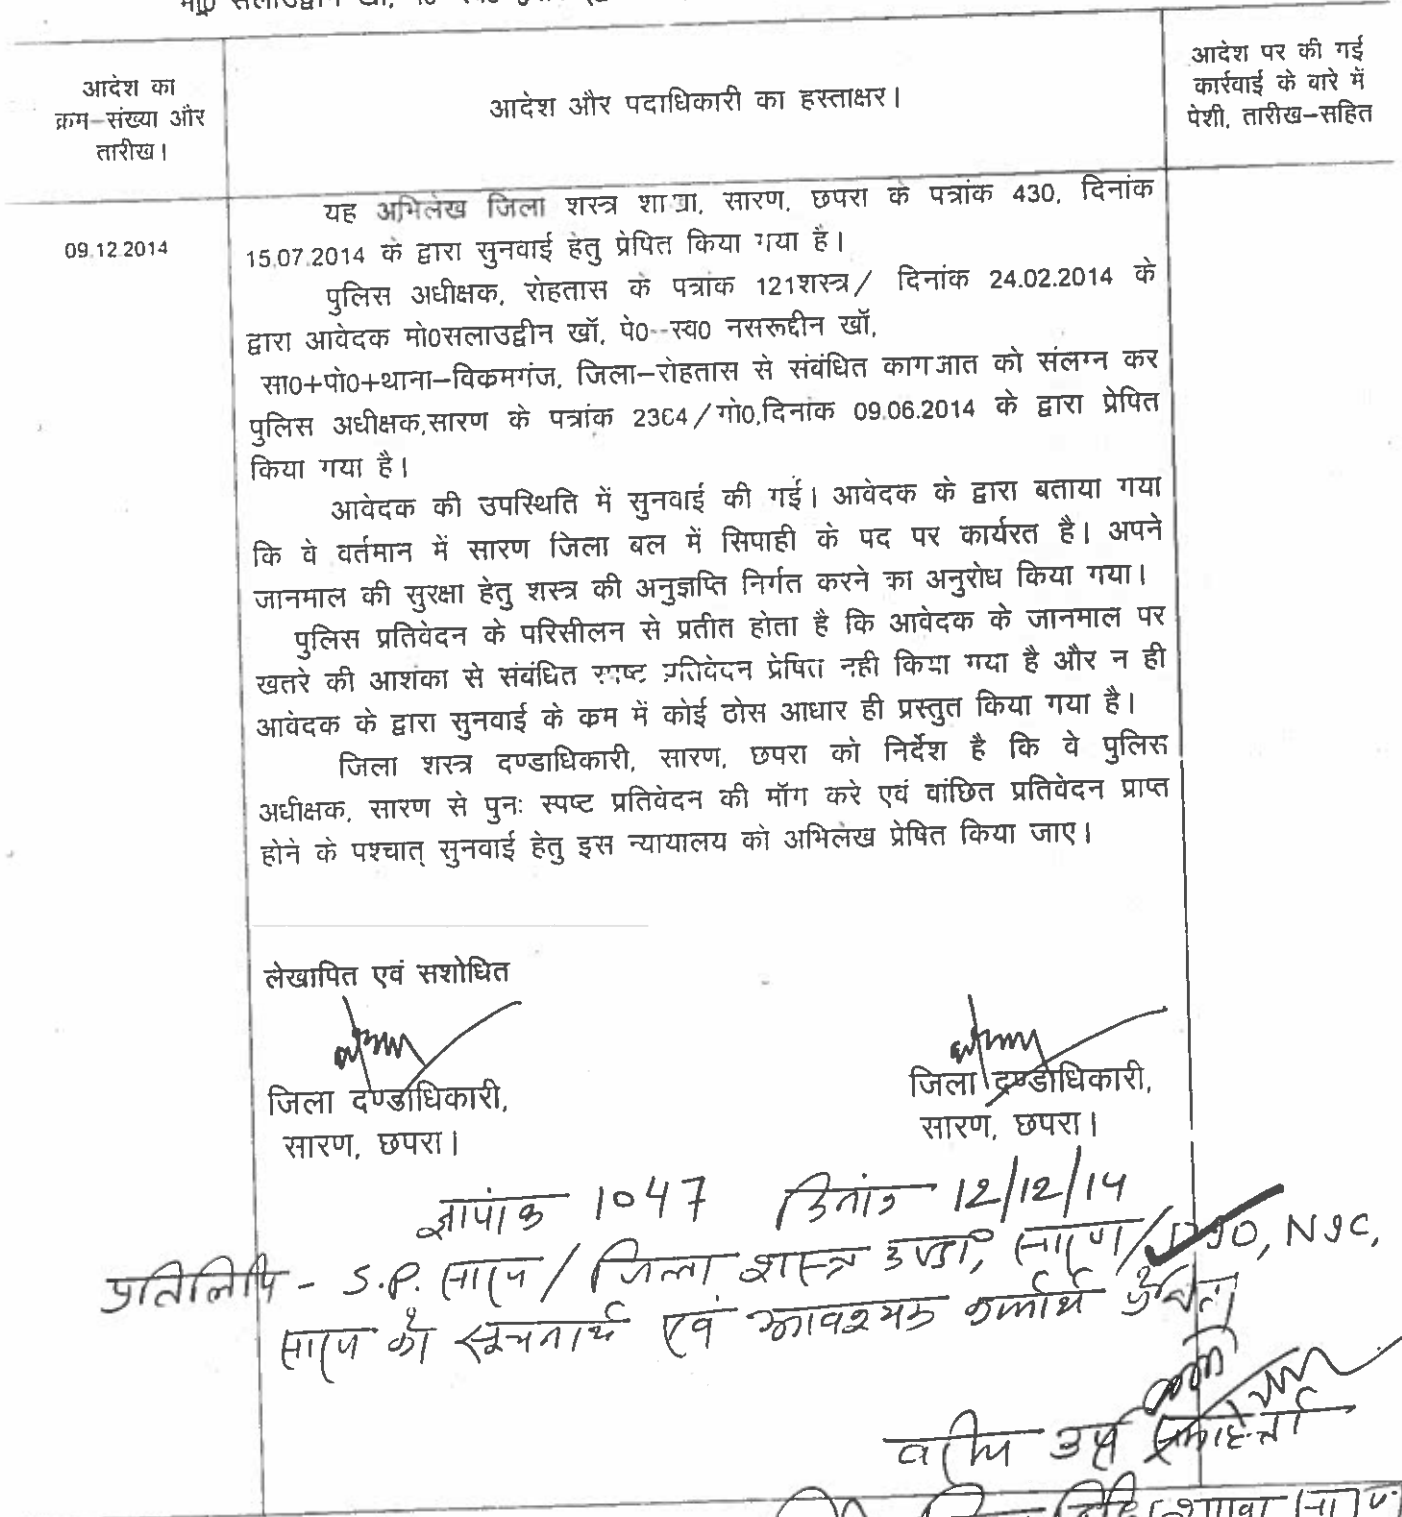 मो0 सलाउद्वीन खॉ,
आदेश का
क्रम–संख्या और
तारीख।
आदेश और पदाधिकारी का हस्ताक्षर।
आदेश पर की गई
कार्रवाई के बारे में
पेशी, तारीख–सहित
09.12.2014
यह अभिलेख जिला शस्त्र शाखा, सारण, छपरा के पत्रांक 430, दिनांक
15.07.2014 के द्वारा सुनवाई हेतु प्रेषित किया गया है।
पुलिस अधीक्षक, रोहतास के पत्रांक 121शस्त्र/ दिनांक 24.02.2014 के
द्वारा आवेदक मो0सलाउद्वीन खॉ, पे0--स्व0 नसरूद्दीन खॉ,
सा0+पो0+थाना–विकमगंज, जिला–रोहतास से संबंधित कागजात को संलग्न कर
पुलिस अधीक्षक,सारण के पत्रांक 2364/गो0,दिनांक 09.06.2014 के द्वारा प्रेषित
किया गया है।
आवेदक की उपस्थिति में सुनवाई की गई। आवेदक के द्वारा बताया गया
कि वे वर्तमान में सारण जिला बल में सिपाही के पद पर कार्यरत है। अपने
जानमाल की सुरक्षा हेतु शस्त्र की अनुज्ञप्ति निर्गत करने का अनुरोध किया गया।
पुलिस प्रतिवेदन के परिसीलन से प्रतीत होता है कि आवेदक के जानमाल पर
खतरे की आशंका से संबंधित स्पष्ट प्रतिवेदन प्रेषित नही किया गया है और न ही
आवेदक के द्वारा सुनवाई के कम में कोई ठोस आधार ही प्रस्तुत किया गया है।
जिला शस्त्र दण्डाधिकारी, सारण, छपरा को निर्देश है कि वे पुलिस
अधीक्षक, सारण से पुनः स्पष्ट प्रतिवेदन की मॉग करे एवं वांछित प्रतिवेदन प्राप्त
होने के पश्चात् सुनवाई हेतु इस न्यायालय को अभिलेख प्रेषित किया जाए।
लेखापित एवं सशोधित
जिला दण्डाधिकारी,
सारण, छपरा।
जिला दण्डाधिकारी,
सारण, छपरा।
ज्ञापांक 1047 दिनांक 12/12/14
प्रतिलिपि - S.P. सारण / जिला शस्त्र दण्डा, सारण / DIO, NIC,
सारण को सूचनार्थ एवं आवश्यक कार्यार्थ प्रेषित
वरीय उप समाहर्त्ता
शाखा सारण